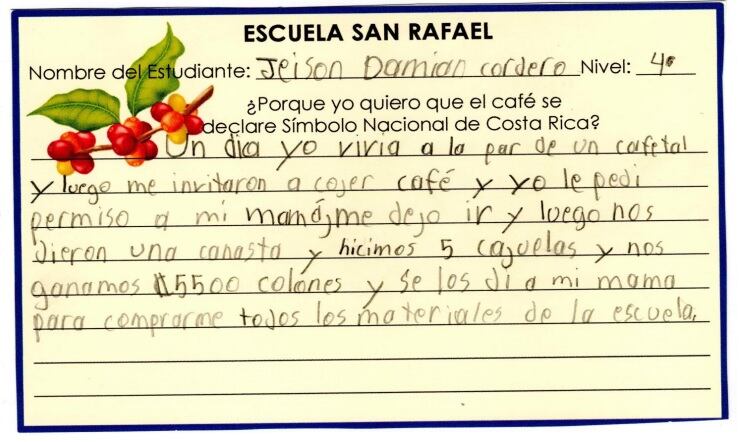 ESCUELA SAN RAFAEL
Nombre del Estudiante: Jeison Damian cordero Nivel: 4°
¿Porque yo quiero que el café se
declare Símbolo Nacional de Costa Rica?
Un dia yo vivia a la par de un cafetal
y luego me invitaron a cojer café y yo le pedi
permiso a mi mamá, me dejo ir y luego nos
dieron una canasta y hicimos 5 cajuelas y nos
ganamos ₡5500 colónes y se los di a mi mama
para comprarme todos los materiales de la escuela.